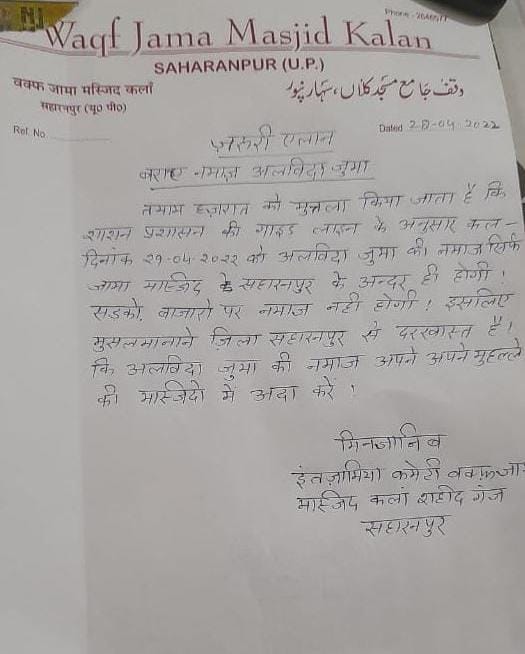 Phone - 2646577
Waqf Jama Masjid Kalan
SAHARANPUR (U.P.)
वक्फ जामा मस्जिद कलाँ
सहारनपुर (यू० पी०)
وقف جامع مسجد کلاں، سہارنپور
Ref. No.
Dated 28-04-2022
ज़रुरी एलान
बराए नमाज़ अलविदा जुमा
तमाम हज़रात को मुत्तला किया जाता है कि
शाशन प्रशासन की गाइड लाइन के अनुसार कल-
दिनांक 29-04-2022 को अलविदा जुमा की नमाज सिर्फ
जामा मास्जिद के सहारनपुर के अन्दर ही होगी।
सड़को, बाजारो पर नमाज नही होगी! इसलिए
मुसलमानाने ज़िला सहारनपुर से दरख्वास्त है।
कि अलविदा जुमा की नमाज अपने अपने मुहल्ले
की मास्जिदो में अदा करें!
मिनजानिब
इंतज़ामिया कमेटी वक्फ़ जा
मास्जिद कलां शहीद गंज
सहारनपुर